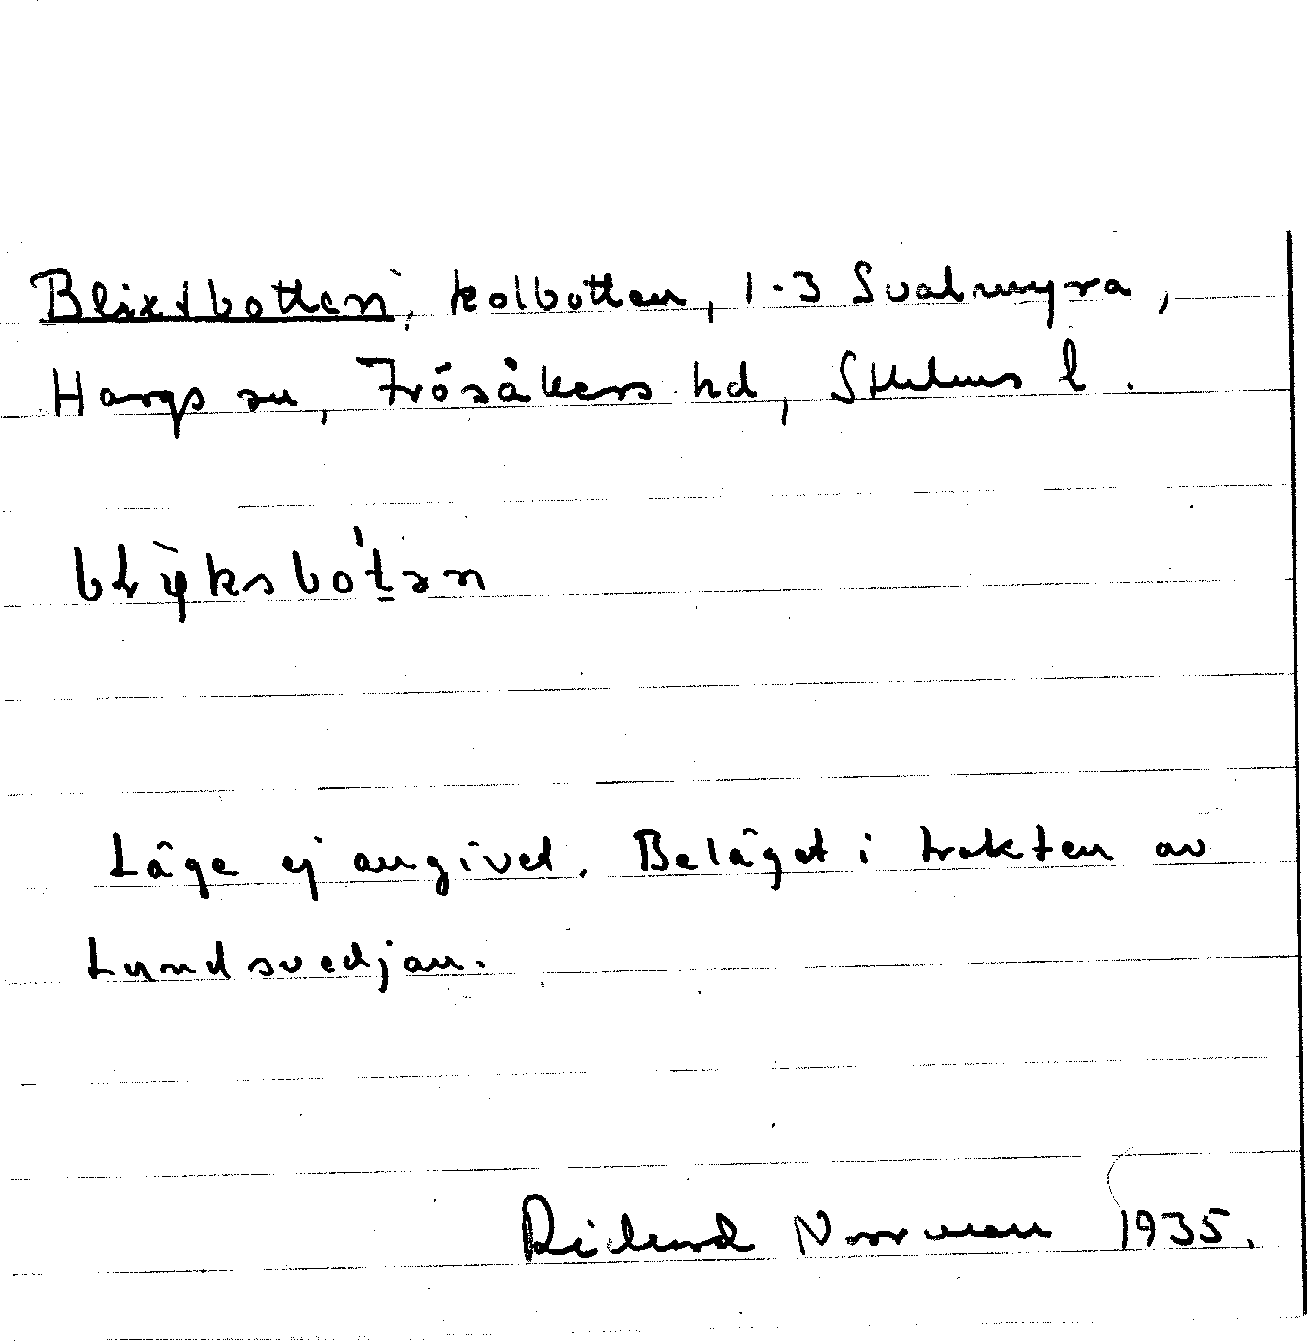 Blixtbotten, kolbotten, 1-3 Svalmyra,
Hargs sn, Frösåkers hd, Sthlms l.
Läge ej angivet. Beläget i trakten av
Lundsvedjan.
Richard Norrman 1935.